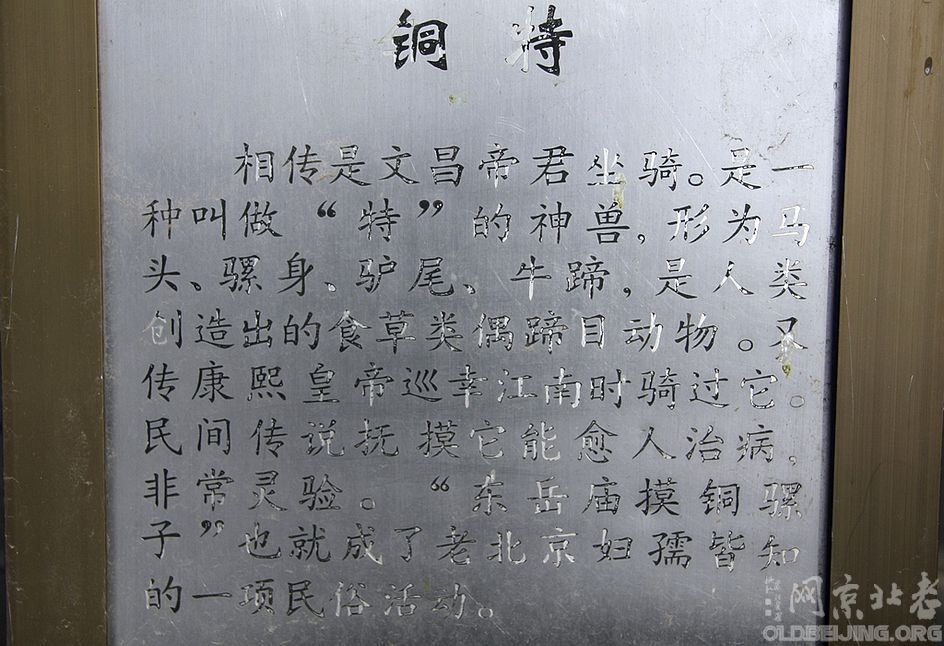 铜特
相传是文昌帝君坐骑。是一
种叫做“特”的神兽，形为马
头、骡身、驴尾、牛蹄，是人类
创造出的食草类偶蹄目动物。又
传康熙皇帝巡幸江南时骑过它。
民间传说抚摸它能愈人治病，
非常灵验。“东岳庙摸铜骡
子”也就成了老北京妇孺皆知
的一项民俗活动。
网京北老
OLDBEIJING.ORG